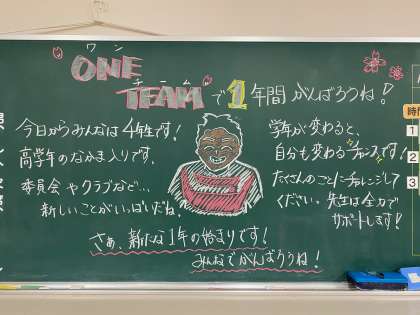 ワン
ONE
チーム
TEAMで1年間がんばろうね!
今日からみんなは4年生です!
高学年のなかま入りです。
委員会やクラブなど...
新しいことがいっぱいだね。
学年が変わると、
自分も変わるチャンスです!
たくさんのことにチャレンジして
ください。先生は全力で
サポートします!
さぁ、新たな1年の始まりです!
みんなでがんばろうね!
時間
1
2
3